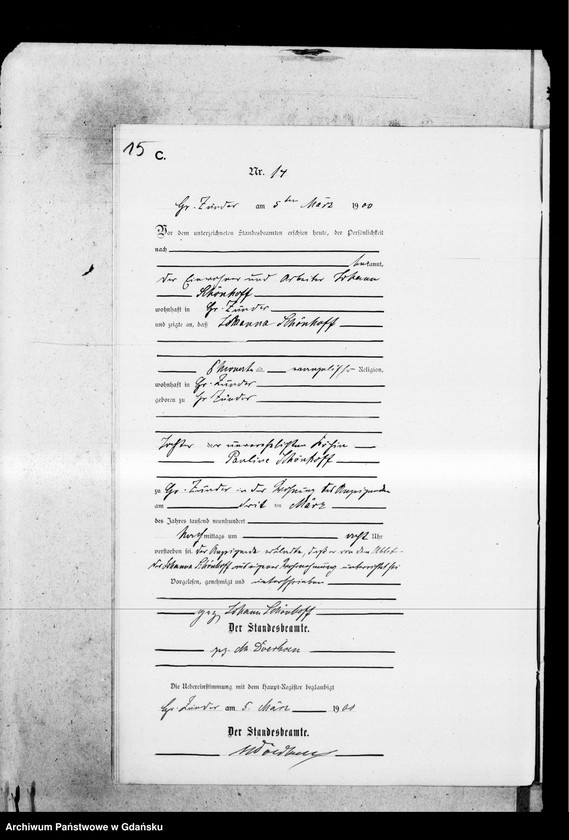 15 C.
Nr. 14
Gr. Zünder am 5ten März 1900
Vor dem unterzeichneten Standesbeamten erschien heute, der Persönlichkeit
nach
bekannt,
der Einwohner und Arbeiter Johann
Schönhoff
wohnhaft in Gr. Zünder
und zeigte an, daß Johanna Schönhoff
8 Monate alt, evangelischer Religion,
wohnhaft in Gr. Zünder
geboren zu Gr. Zünder
Tochter der unverehelichten Köchin
Pauline Schönhoff
zu Gr. Zünder in der Wohnung des Anzeigenden
am drit en März
des Jahres tausend neunhundert
Nachmittags um acht Uhr
verstorben sei. Der Anzeigende erklärte, daß er von dem Able-
der Johanna Schönhoff aus eigener Wissenschaft unterrichtet sei
Vorgelesen, genehmigt und unterschrieben
gez. Johann Schönhoff
Der Standesbeamte.
gez.
Die Uebereinstimmung mit dem Haupt-Register beglaubigt
Gr. Zünder am 5. März 1900
Der Standesbeamte.
Archiwum Państwowe w Gdańsku